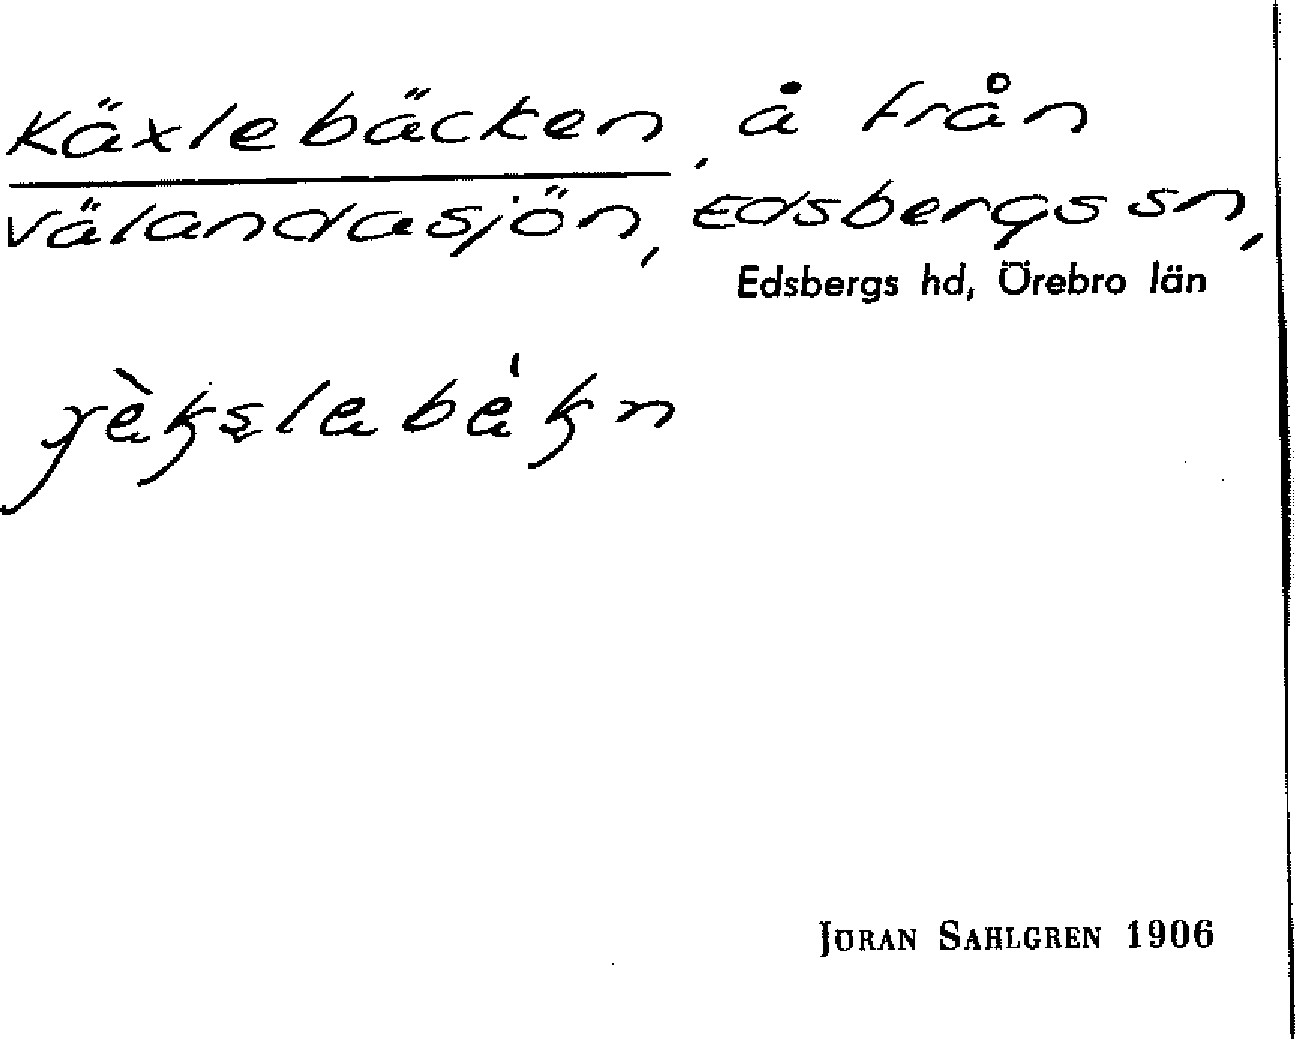 Käxlebäcken, å från
Välandasjön, Edsbergs sn,
Edsbergs hd, Örebro län
JÖRAN SAHLGREN 1906